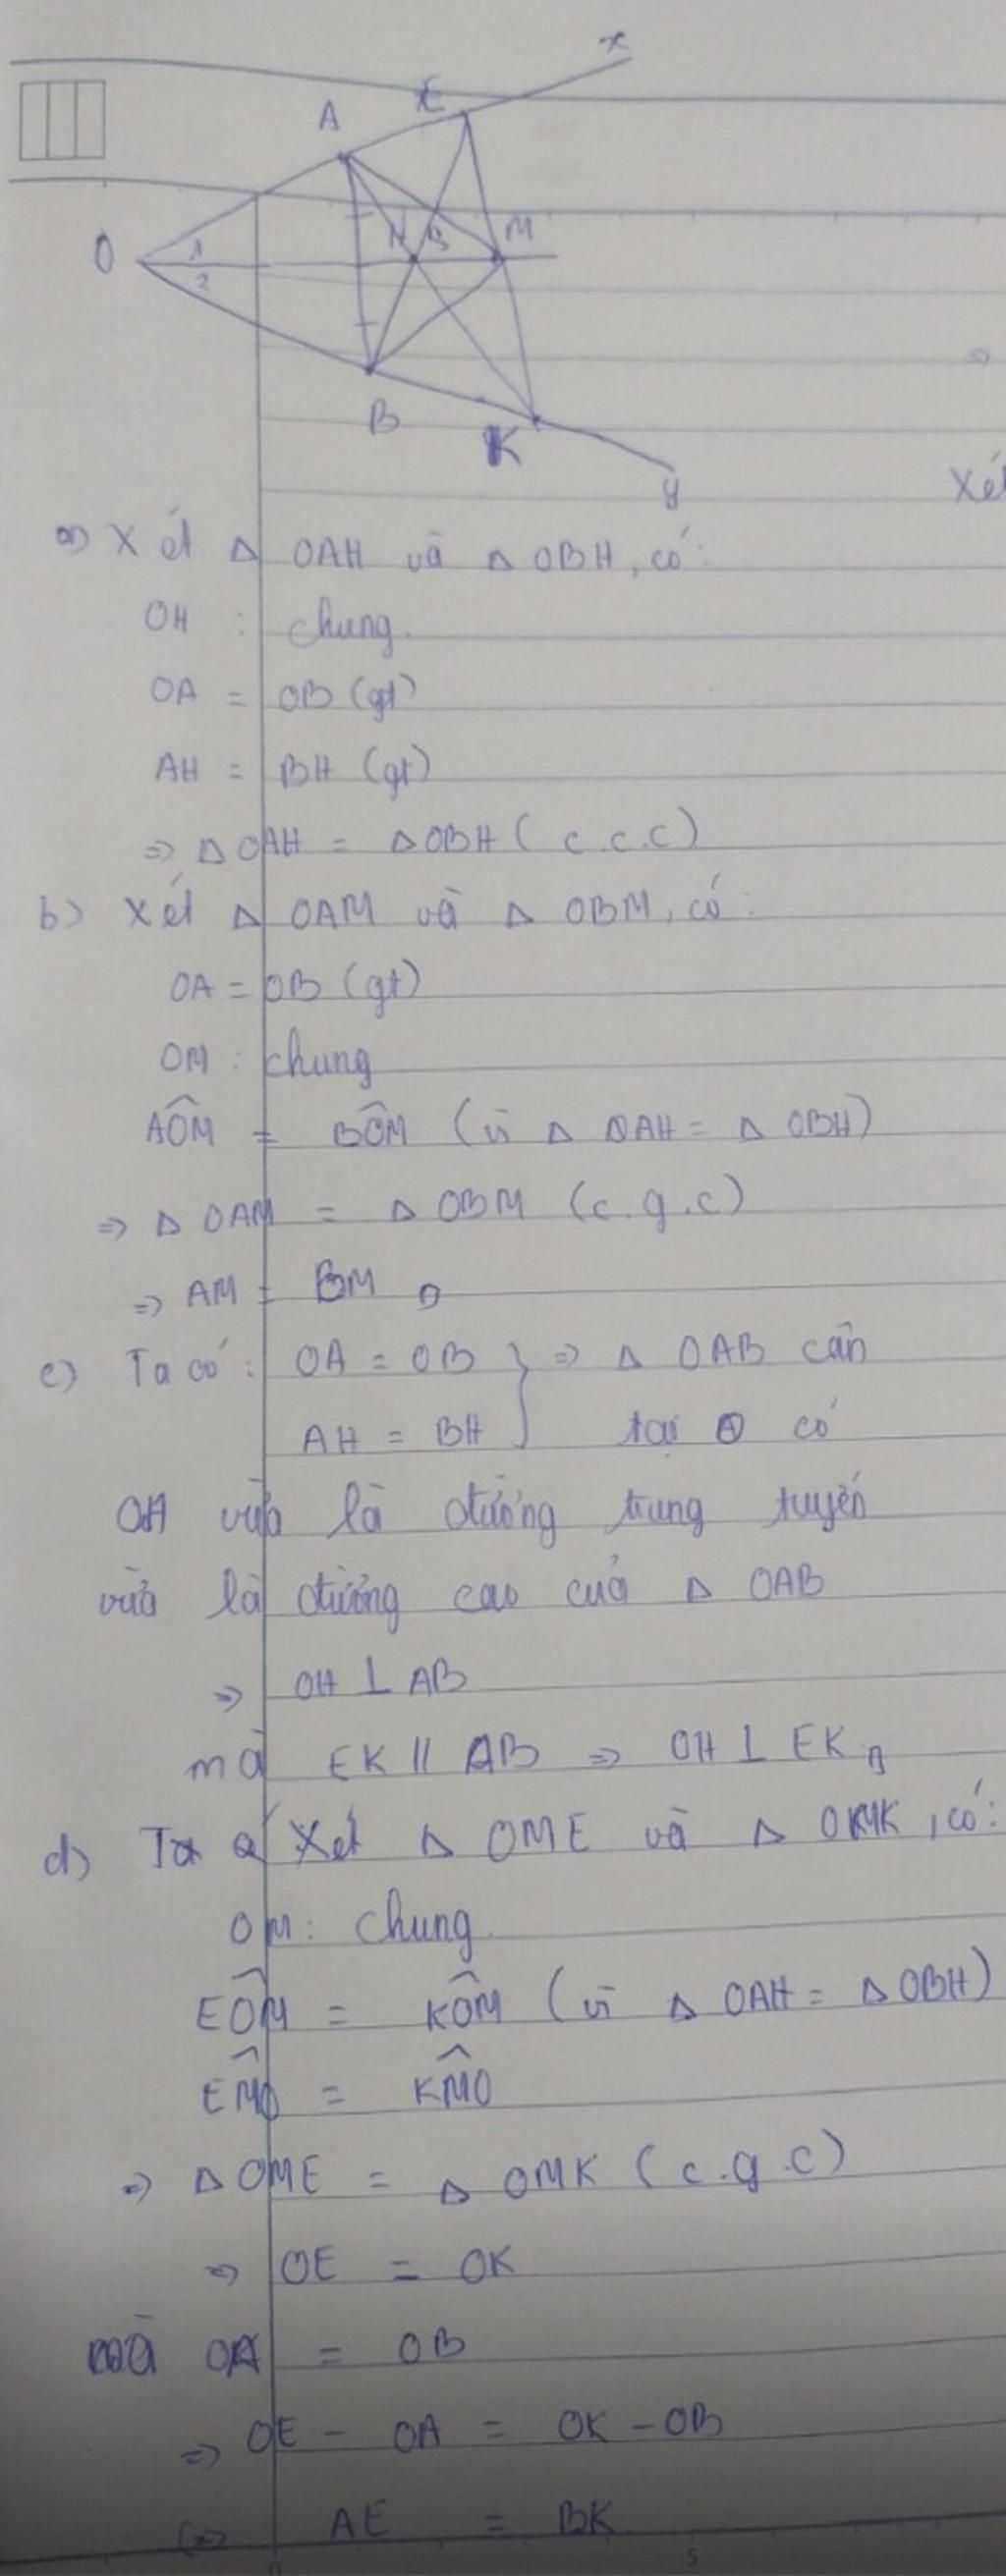 x
A
E
O
1
2
N
3
M
B
K
y
Xé
a) Xét Δ OAH và Δ OBH, có:
OH : chung.
OA = OB (gt)
AH = BH (gt)
=> Δ OAH = Δ OBH ( c.c.c)
b) Xét Δ OAM và Δ OBM, có:
OA = OB (gt)
OM : chung
AÔM = BÔM (vì Δ OAH = Δ OBH)
=> Δ OAM = Δ OBM (c.g.c)
=> AM = BM
c) Ta có: OA = OB } => Δ OAB cân
AH = BH } tại O có
OH vừa là đường trung tuyến
vừa là đường cao của Δ OAB
=> OH ⊥ AB
mà EK // AB => OH ⊥ EK
d) Xét Δ OME và Δ OMK, có:
OM: chung.
EÔM = KÔM (vì Δ OAH = Δ OBH)
EM̂O = KM̂O
=> Δ OME = Δ OMK ( c.g.c)
=> OE = OK
mà OA = OB
=> OE - OA = OK - OB
(=> AE = BK
5